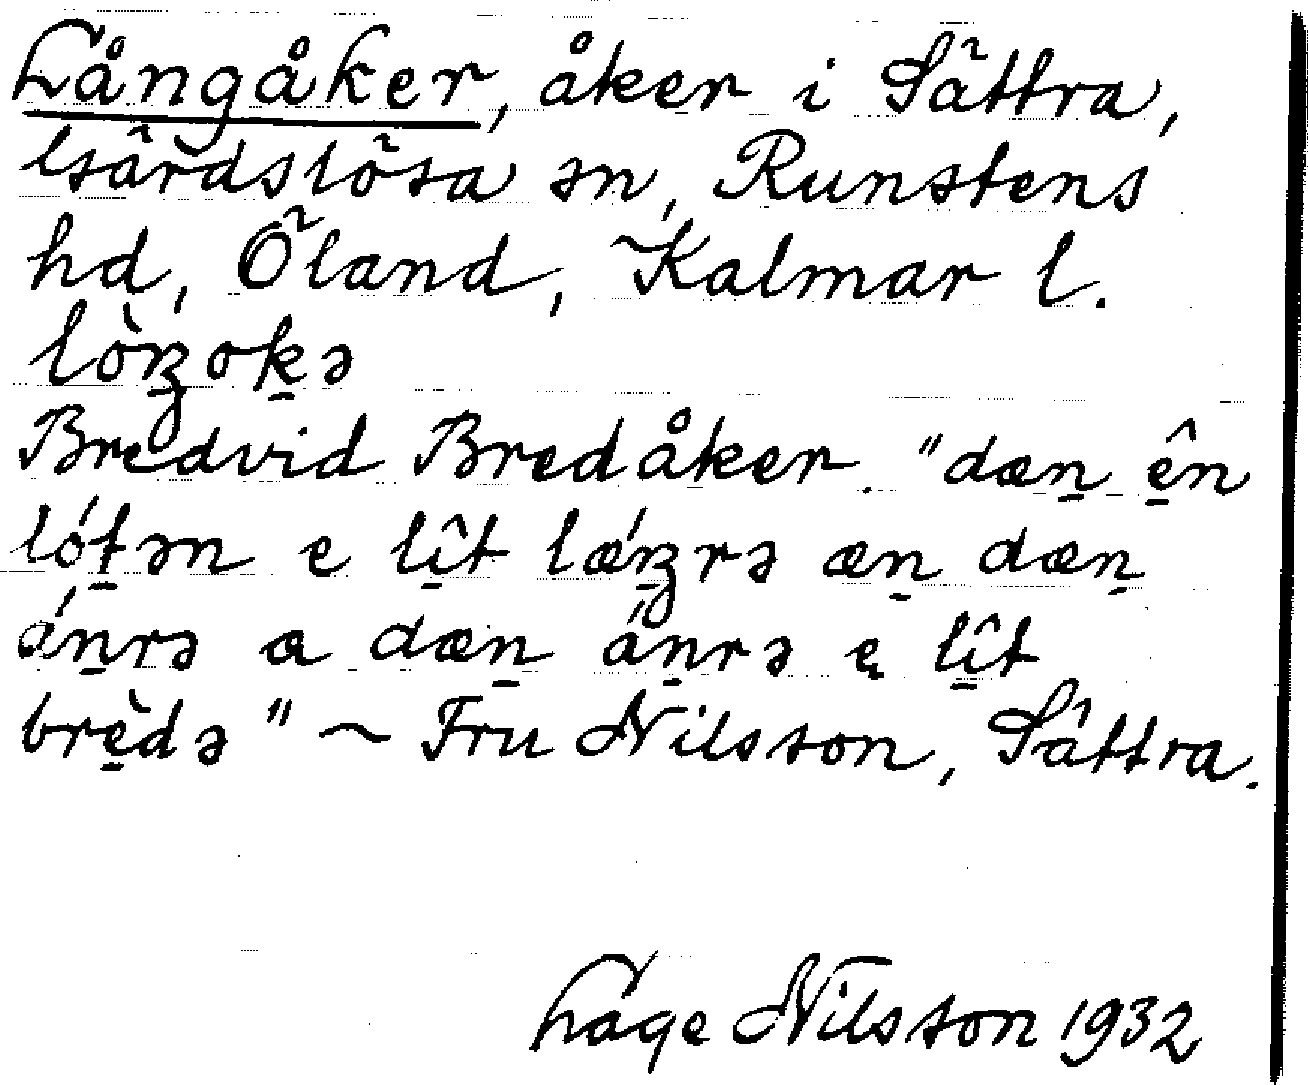 Långåker, åker i Sättra,
Gärdslösa sn, Runstens
hd, Öland, Kalmar l.
lòŋ̱oḵə
Bredvid Bredåker. "dæṉ ê̱n
lóṯən e lî̱t lǽŋ̱rə æṉ dæṉ
áṉrə a dæṉ áṉrə e̱ lî̱t
brè̱də" ~ Fru Nilsson, Sättra.
Låge Nilsson 1932